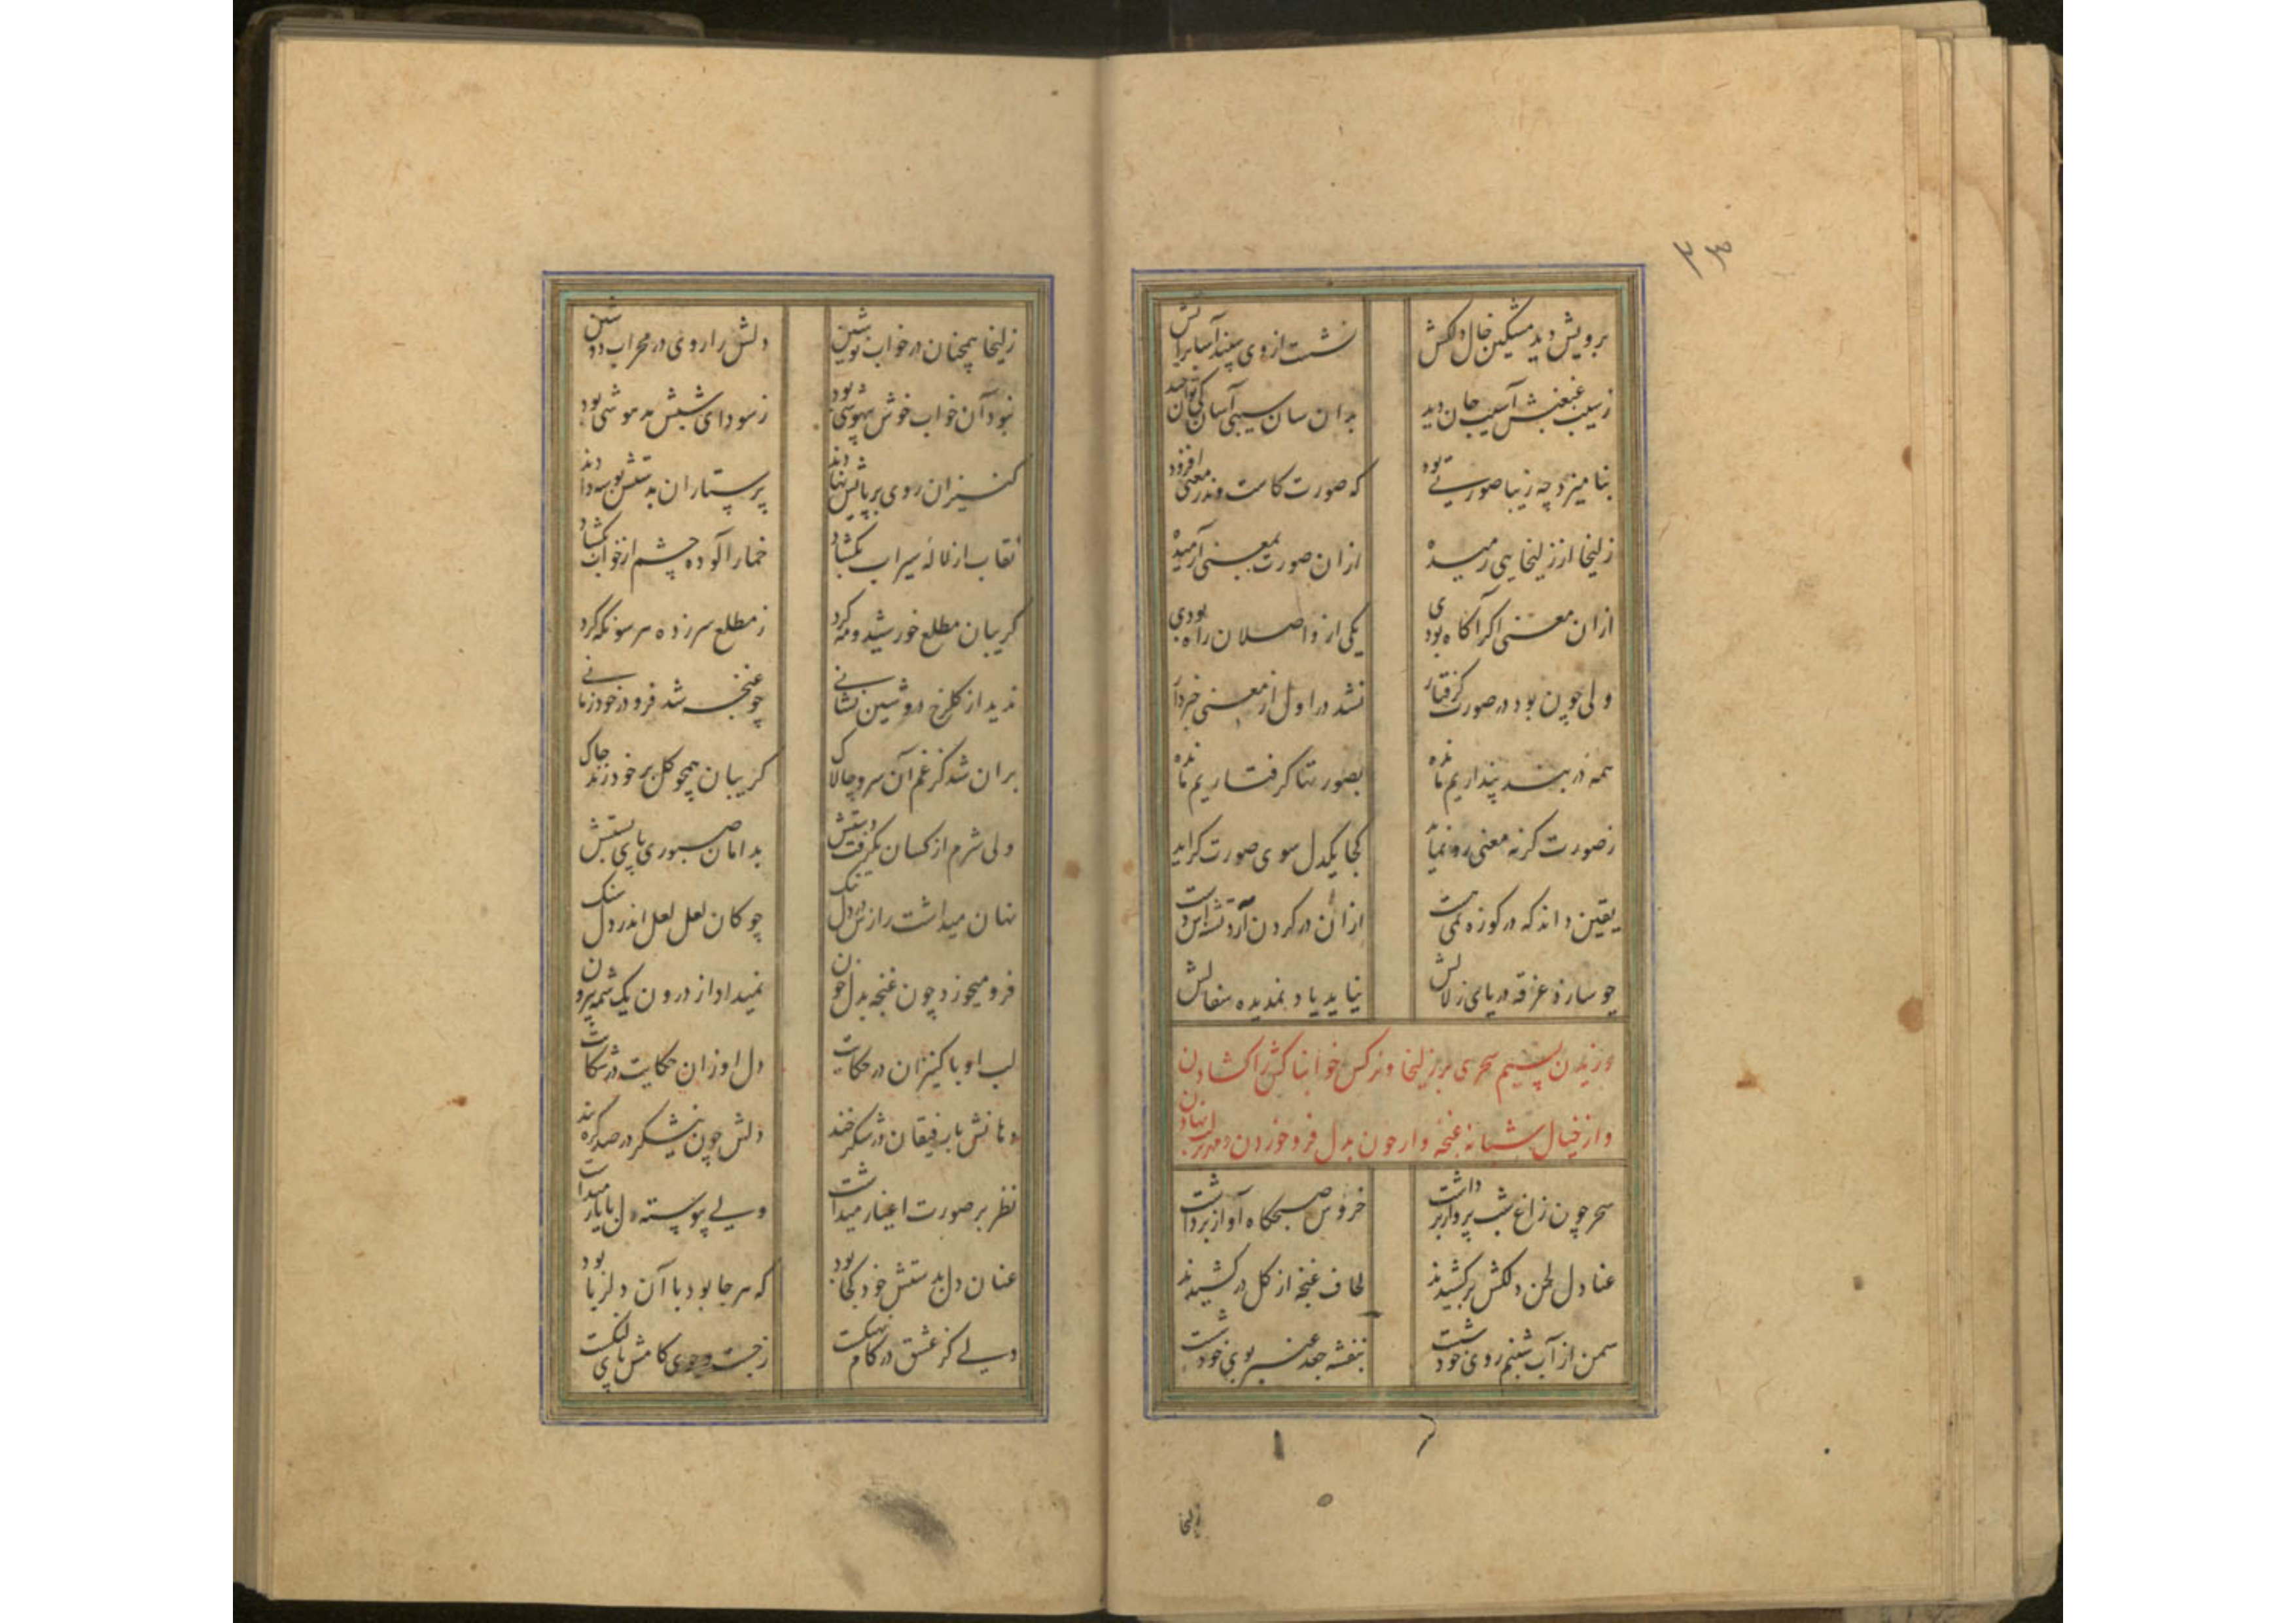 برویش دید مشکین خال دلکش نشست از وی سپند آسا بر آتش
ز سیب غبغبش آسیب جان دید بدان سان سیبی آسان کی توان چید
بنامیزد چه زیبا صورتی بود که صورت کاست وندر معنی افزود
زلیخا از زلیخایی رمیده از ان صورت بمعنی آرمیده
ازان معنی اگر آگاه بودی یکی از واصلان راه بودی
ولی چون بود در صورت گرفتار نشد در اول از معنی خبردار
همه در بند پنداریم مانده بصورتها گرفتاریم مانده
ز صورت گر نه معنی رو نماید کجا یکدل سوی صورت گراید
یقین داند که در کوزه نمی هست از ان در گردن آرد تشنه اش دست
چو سازد غرقه دریای زلالش نیاید یاد نمدیده سفالش
وزیدن نسیم سحری بر زلیخا و نرکس خوابناکش را کشادن
و از خیال شبانه غنچه وار خون بدل فرو خوردن و مهر بر لب نهادن
سحر چون زاغ شب پرواز برداشت خروس صبحگاه آواز برداشت
عنادل لحن دلکش برکشیدند لحاف غنچه از گل درکشیدند
سمن از آب شبنم روی خود شست بنفشه جعد عنبر بوی خود شست
زلیخا
۳۴
زلیخا همچنان در خواب نوشین دلش را روی در محراب دوشین
نبود آن خواب خوش بیهوشی بود ز سودای شبش مدهوشی بود
کنیزان روی بر پایش نهادند پرستاران بدستش بوسه دادند
نقاب از لاله سیراب بکشاد خمار آلوده چشم از خواب بکشاد
گریبان مطلع خورشید و مه کرد ز مطلع سر زده هر سو نگه کرد
ندید از گلرخ دوشین نشانی چو غنچه شد فرو در خود زمانی
بران شد کز غم آن سرو چالاک گریبان همچو گل بر خود زند چاک
ولی شرم از کسان بگرفت دستش بدامان صبوری پای بستش
نهان میداشت رازش در دل تنگ چو کان لعل لعل اندر دل سنگ
فرو میخورد چون غنچه بدل خون نمیداد از درون یک شمه بیرون
لب او با کنیزان در حکایت دل او زان حکایت در شکایت
دهانش با رفیقان در شکر خند دلش چون نیشکر در صد گره بند
نظر بر صورت اغیار میداشت ولی پیوسته دل با یار میداشت
عنان دل بدستش خود کجا بود که هر جا بود با آن دلربا بود
دلی کز عشق در کام نهنگست ز جست وجوی کامش پای لنگست